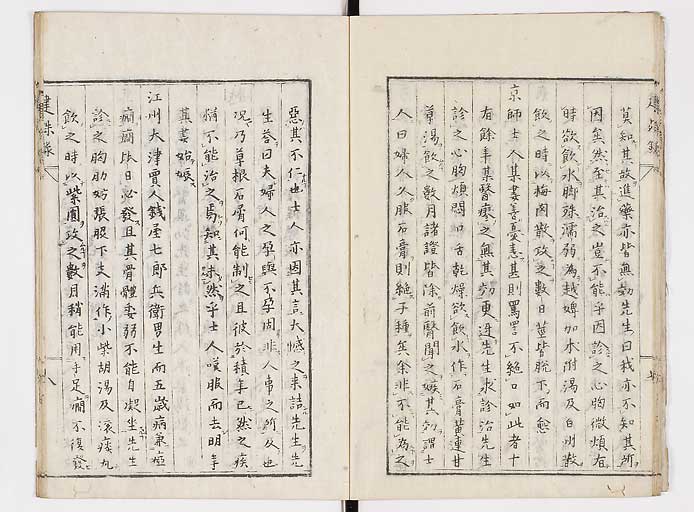 莫知其故進藥亦皆無効先生曰我亦不知其所
因矣然至其治之豈不能乎因診之心胸微煩有
時欲飲水脚殊濡弱為越婢加朮附湯及白州散
飲之時以梅肉散攻之數日並皆脱下而愈
京師士人某妻善憂恚其則罵詈不絶口如此者十
有餘年某醫療之無其効更迎先生求診治先生
診之心胸煩悶口舌乾燥欲飲水作石膏黄連甘
草湯飲之數月諸證皆除前醫聞之嫉其効謂士
人曰婦人久服石膏則絶子種矣余非不能為之
惡其不仁也士人亦因其言大憾之来詰先生先
生答曰夫婦人之孕與不孕固非人事之所及也
况乃草根石屑何能制之且彼於積年已然之疾
猶不能治之焉知其未然乎士人嘆服而去明年
其妻始娠
江州大津賈人錢屋七郎兵衛男生而五歳病兼瘂
癇癇日必發且其骨體委弱不能自凝坐先生
診之胸肋妨張股下支満作小柴胡湯及滾痰丸
飲之時以紫圓攻之數月稍能用手足癇不復發
建殊録
建殊録
八